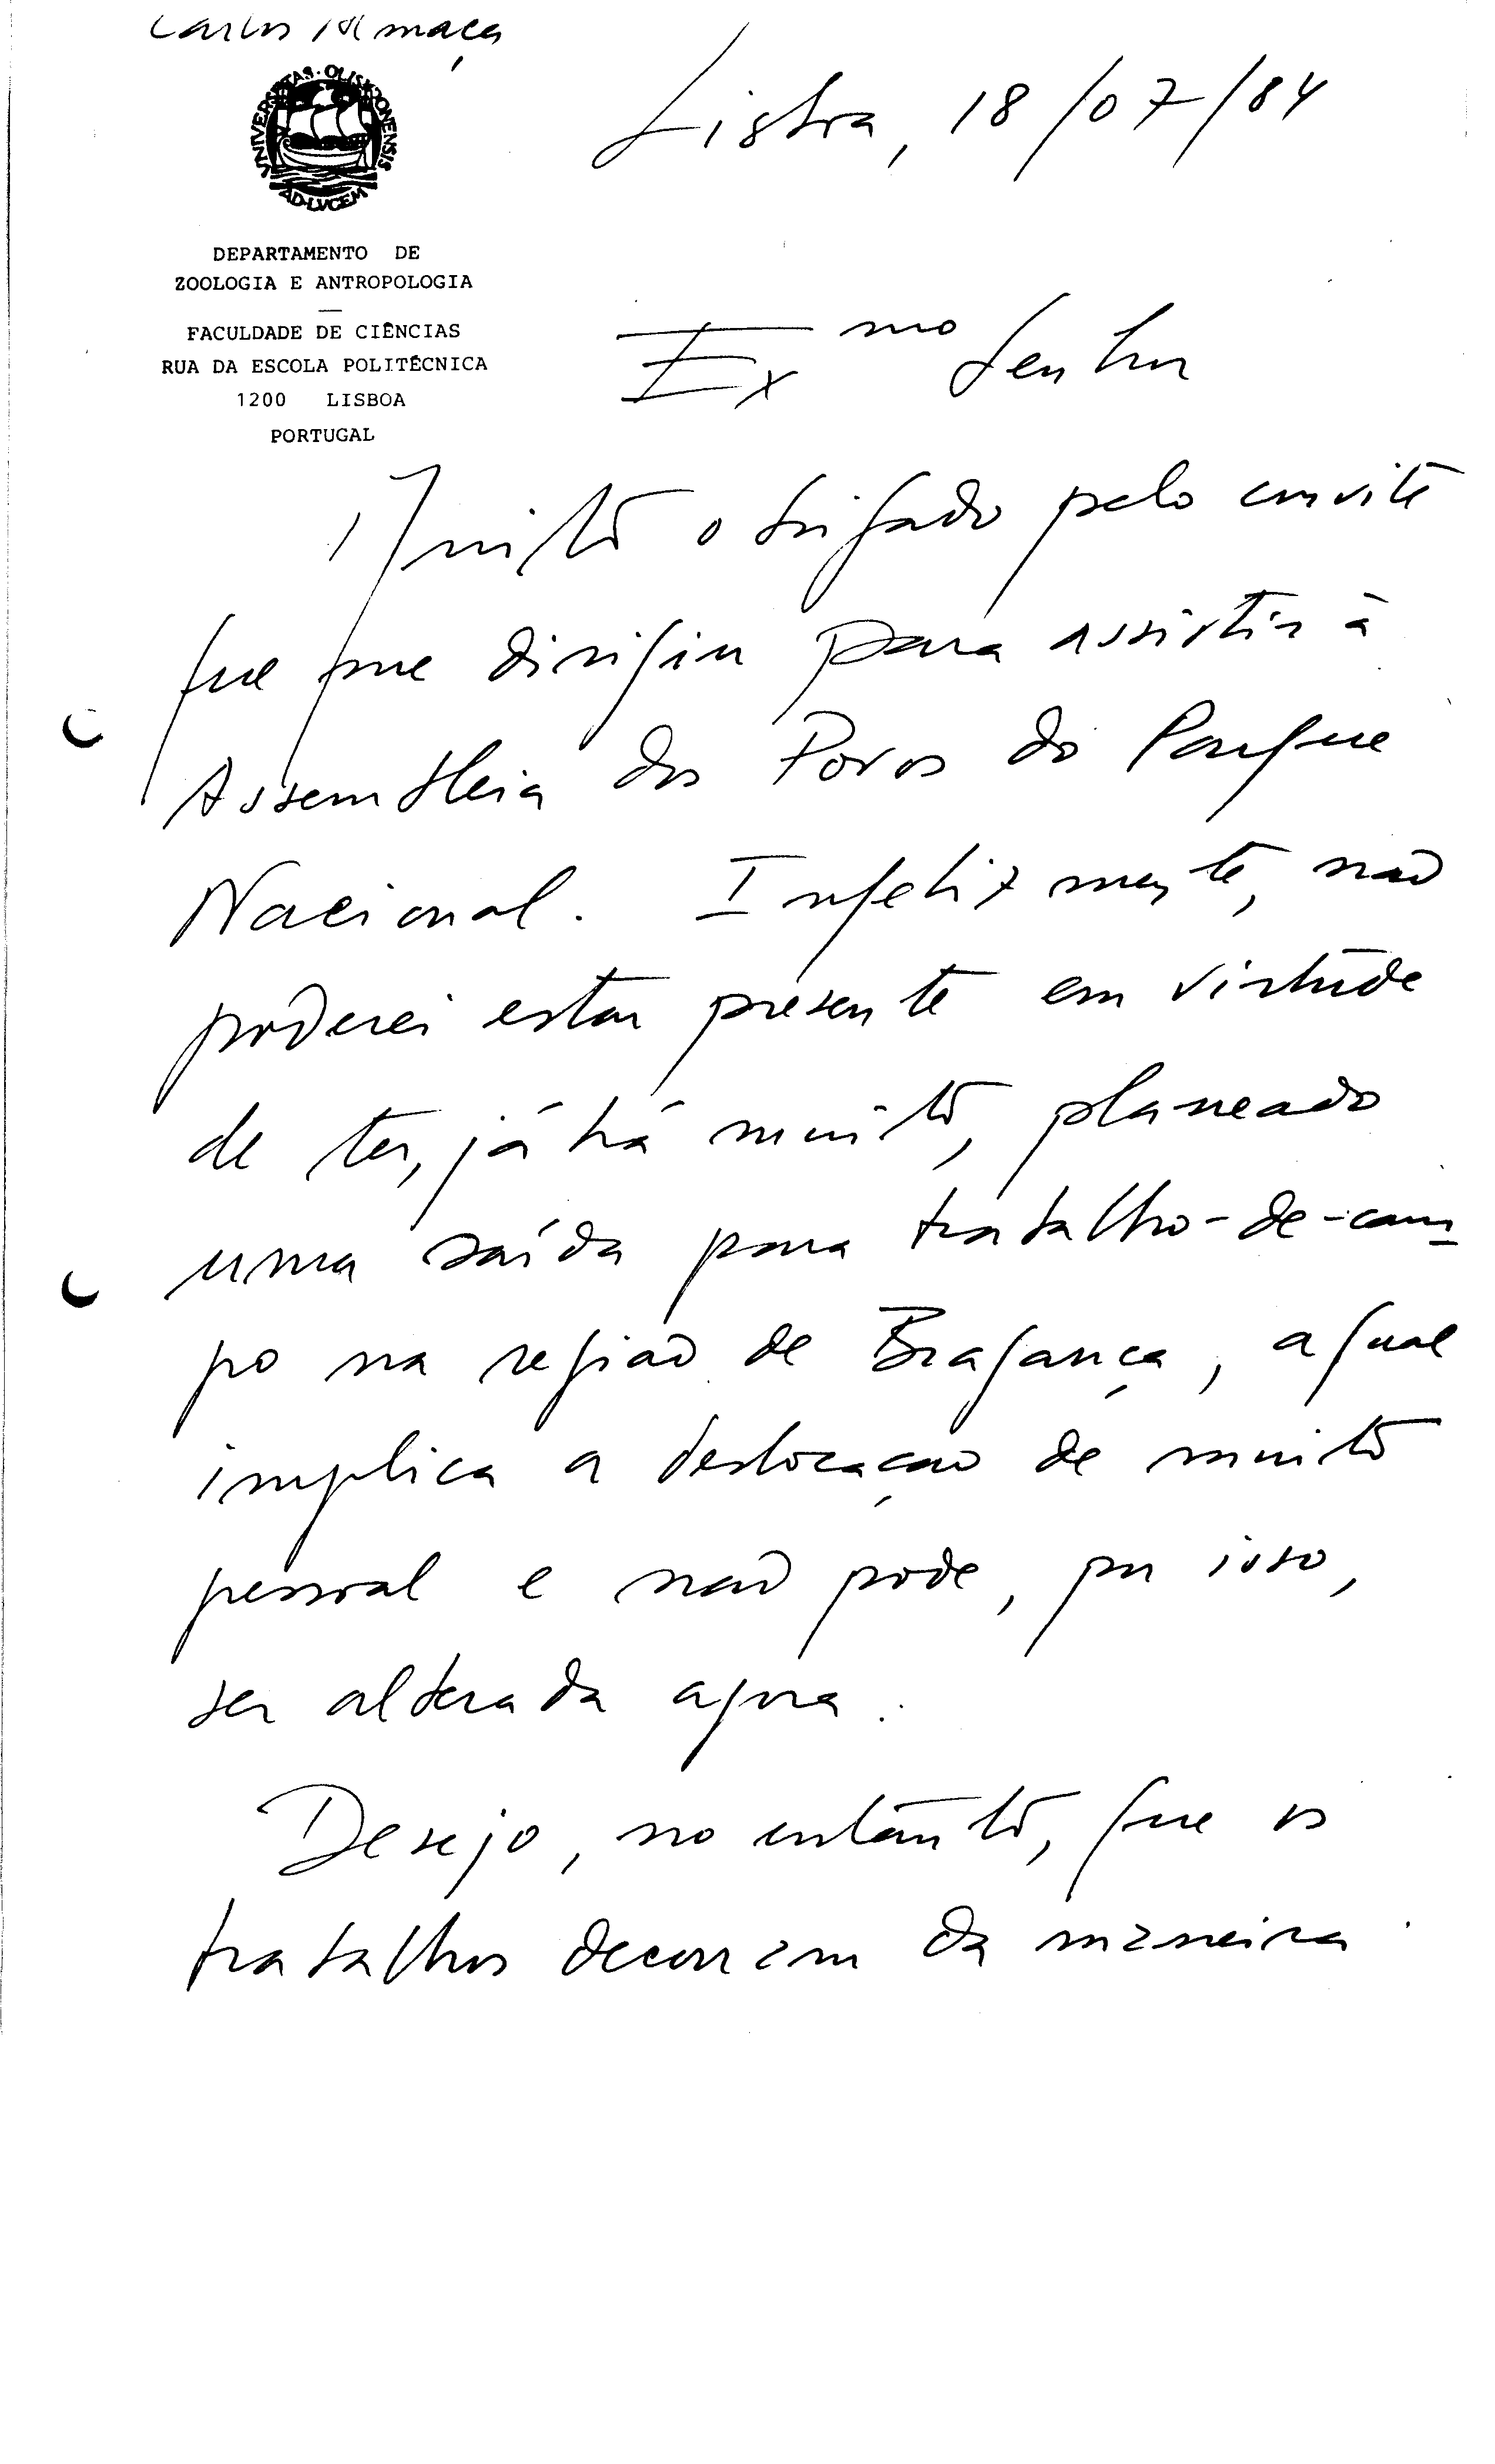 Carlos Almaça
UNIVERSITAS·OLISIPONENSIS
AD·LVCEM
Lisboa, 18/07/84
DEPARTAMENTO DE
ZOOLOGIA E ANTROPOLOGIA
—
FACULDADE DE CIÊNCIAS
RUA DA ESCOLA POLITÉCNICA
1200 LISBOA
PORTUGAL
Exmo Senhor
Muito obrigado pelo convite
que me dirigiu para assistir à
Assembleia dos Povos do Parque
Nacional. Infelizmente, não
poderei estar presente em virtude
de ter, já há muito, planeado
uma saída para trabalho-de-cam-
po na região de Bragança, a qual
implica a deslocação de muito
pessoal e não pode, por isso,
ser alterada agora.
Desejo, no entanto, que os
trabalhos decorram da maneira